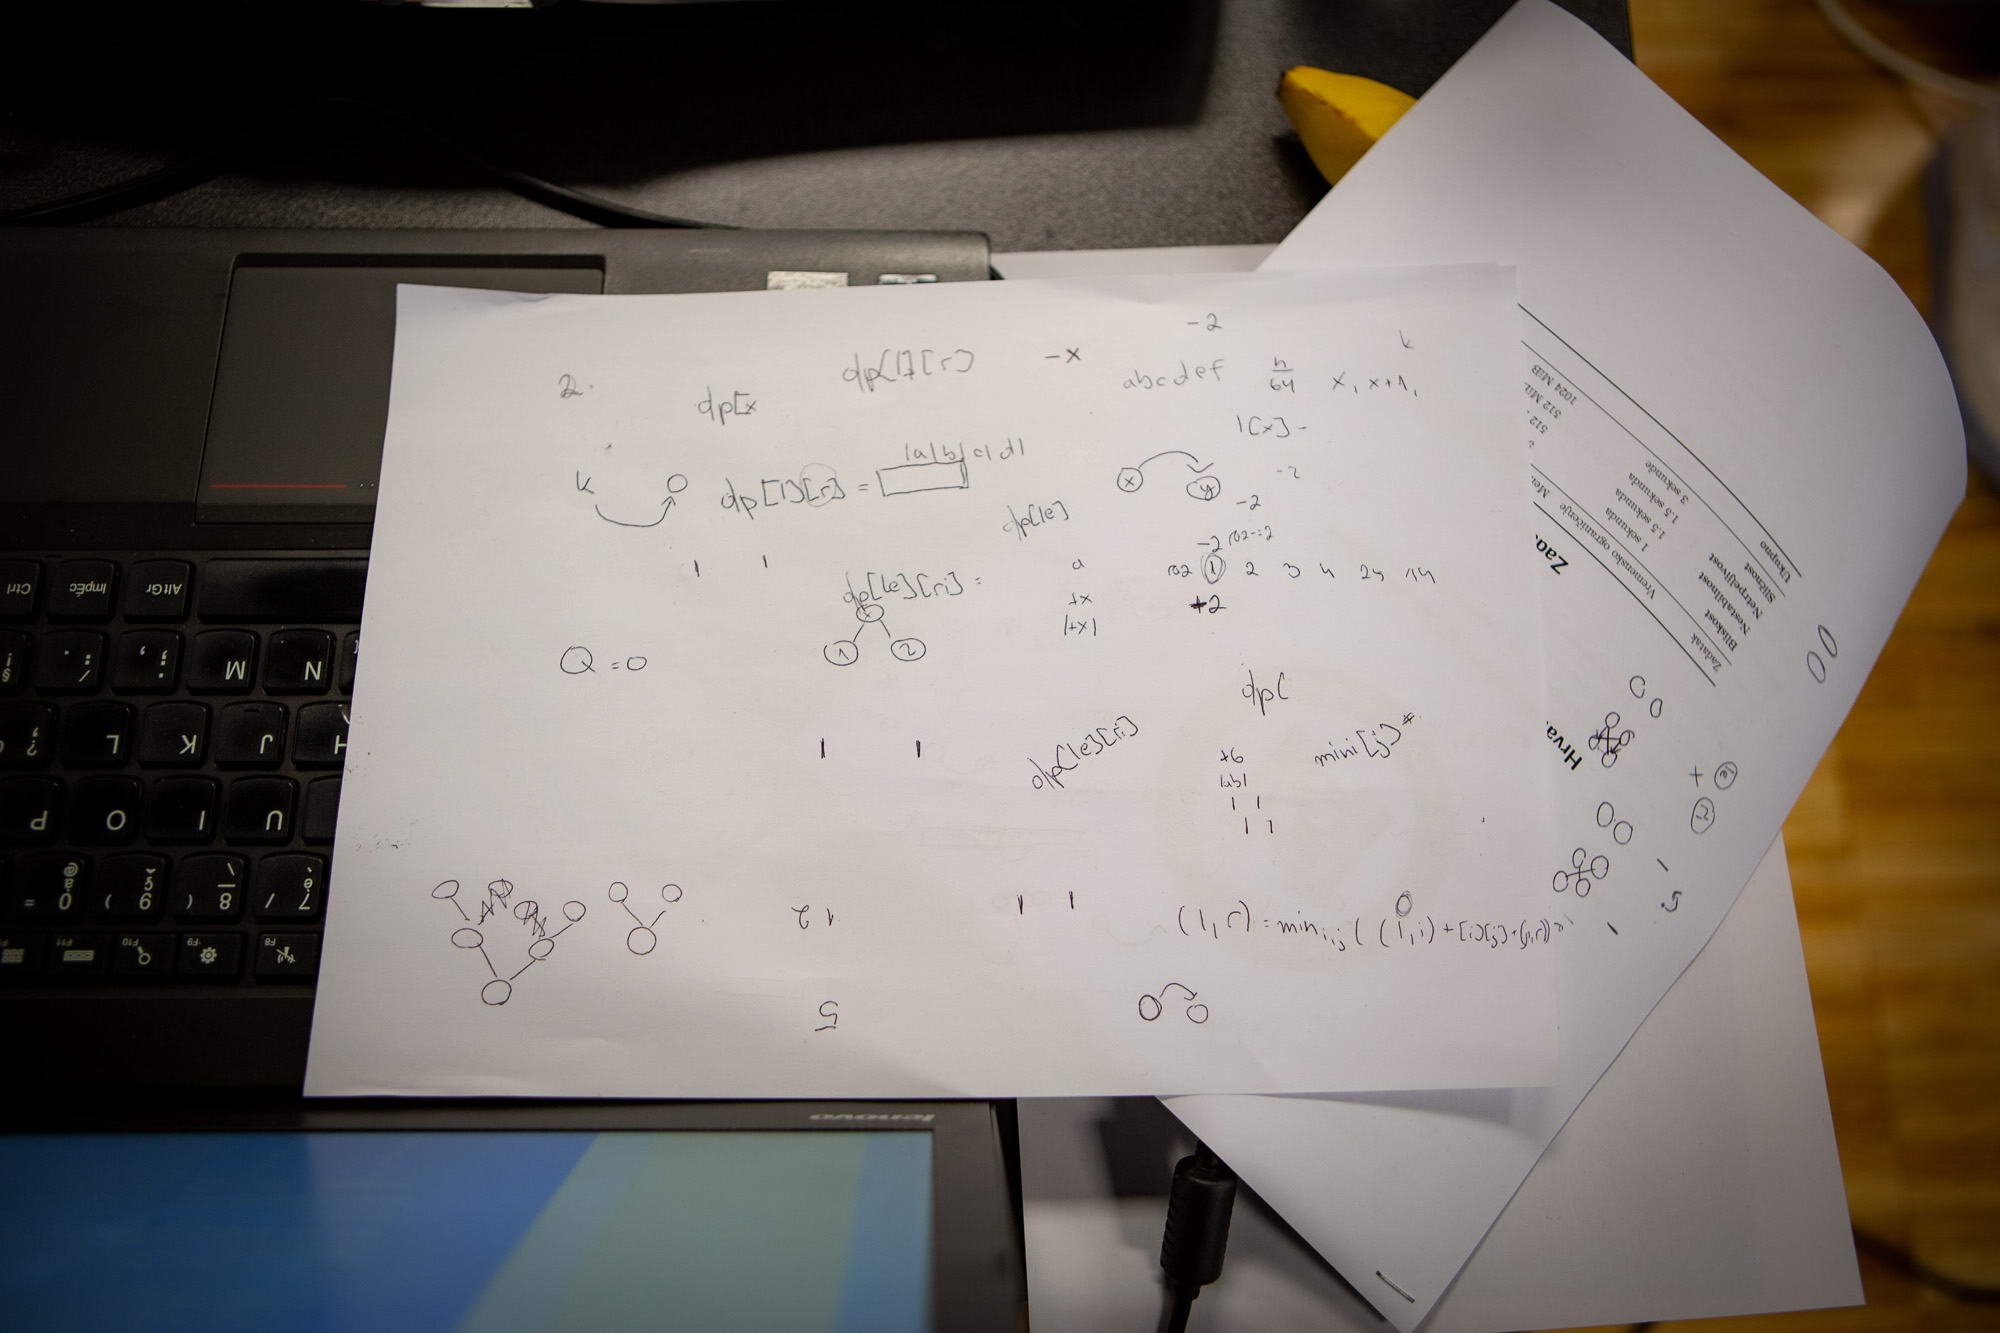 -2
k
2.
dp[x
dp[l][r]
-x
abcdef
n
64
x, x+1,
1[x] -
|a|b|c|d|
k
dp[l][r] =
x
y
-2
-2
dp[le]
-2
1
1
dp[le][ri] =
a
1
2
3
4
24
+x
|+x|
+2
1
2
Q = 0
dp[
dp[le][ri]
mini[j]
+6
|ab|
1 1
1 1
1 1
1 1
12
5
(l,r) = min i,j ( (l,i) + [i][j] + (j,r))
Hrva
Zad
Zadatak
Vremensko ograničenje
Mem
Bliskost
1 sekunda
512
Nestabilnost
1.5 sekunda
512 MiB
Netrpeljivost
1.5 sekunda
1024 MiB
Sličnost
3 sekunde
Ukupno
+
1
5
1
Ctrl
ImpÉc
AltGr
N
M
H
J
K
L
U
I
O
P
7
8
9
0
F8
F9
F10
F11
lenovo